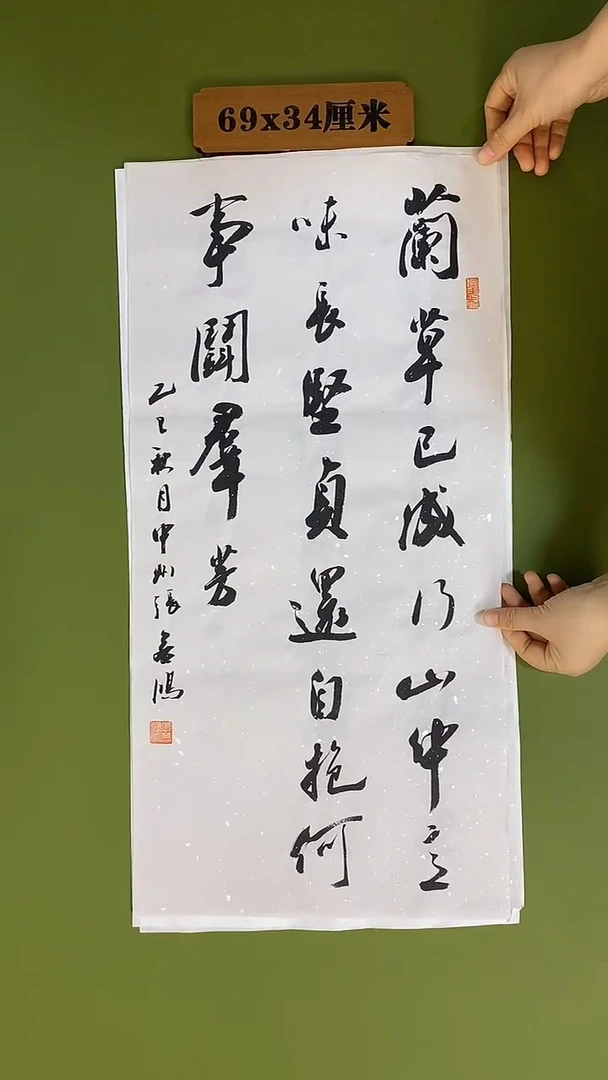 69x34厘米
蘭草已成行山中意
味長堅貞還自抱何
事鬪羣芳
乙巳秋月中州張鴻